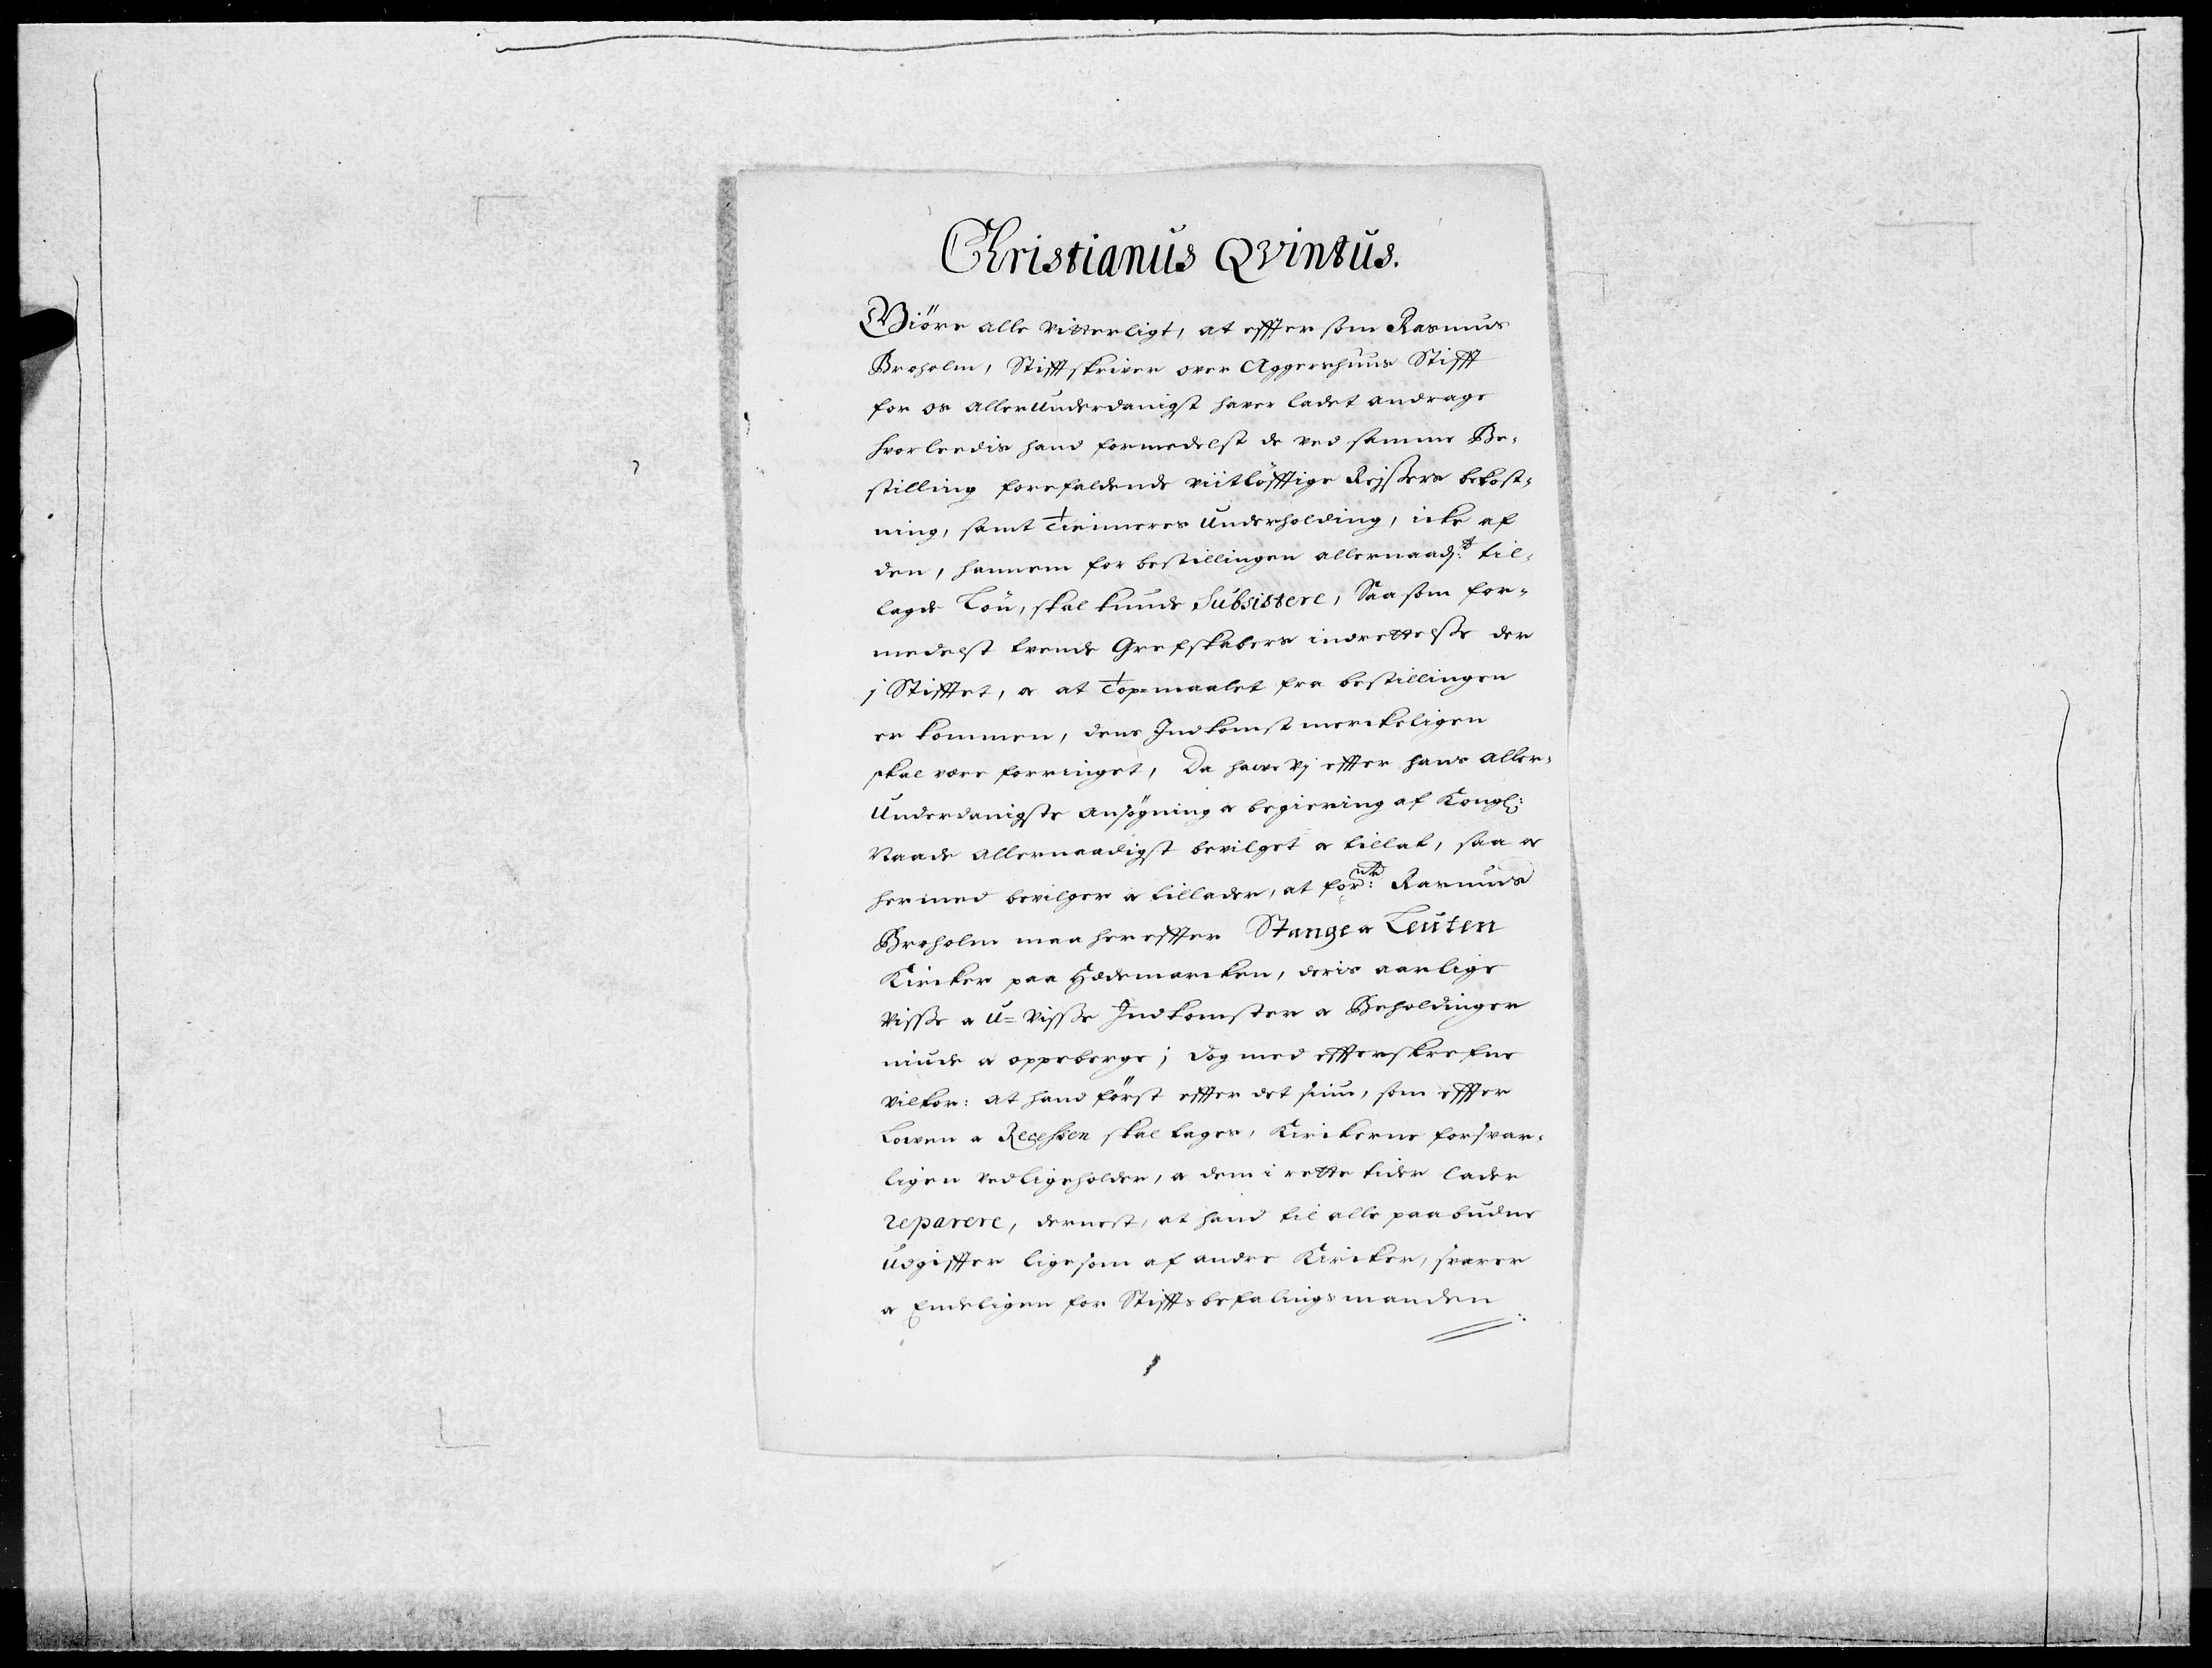 Christianus Qvintus.
Giöre alle vitterligt, at efftersom Rasmus
Breholm, Stifftskriver over Aggershuus Stifft
for os allerunderdanigst haver ladet andrage
hvorleedis hand formedelst de ved samme Be-
stilling forefaldende viitlöfftige Rejssers bekost-
ning, samt Tieneres Underholding, icke af
den, hannem for bestillingen allernaadst: til-
lagde Lön, skal kunde Subsistere, Saasom for-
medelst tvende Grefskabers indrettelsse der
j Stifftet, a at Top-maalet fra bestillingen
er kommen, dens Indkomst merckeligen
skal være forringet, Da have Vj effter hans aller-
underdanigste ansögning a begiering af Kongl:
Naade allernaadigst bevilget a tillat, saa a
hermed bevilger a tillader, at forne: Rasmus
Breholm maa hereffter Stange a Leuten
Kircker paa Hedemarcken, deris aarlige
Visse a U-Visse Indkomster a Beholdinger
niude a oppeberge; dog med effterskrefne
vilkor: at hand först effter det siun, som effter
Loven a Recessen skal tages, Kirckerne forsvar-
ligen vedligeholder, a dem i rette tider lader
reparere, dernest, at hand til alle paabudne
udgiffter ligesom af andre Kircker, svarer
a Endeligen for Stifftsbefalingsmanden